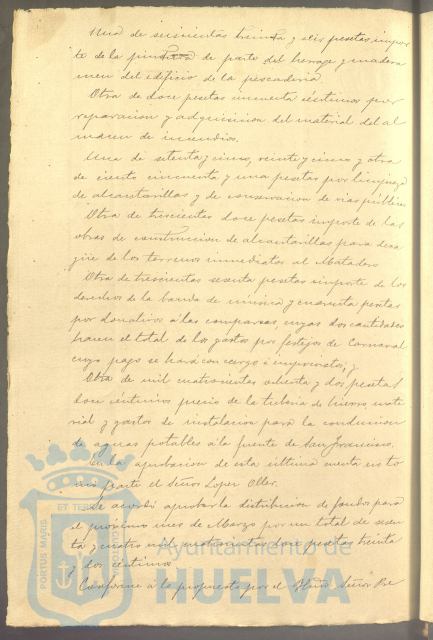 Una de seiscientas treinta y seis pesetas impor
te de la pintura de parte del herraje y madera
men del edificio de la pescaderia
Otra de doce pesetas cincuenta céntimos por
reparacion y adquisicion del material del al
macen de incendios.
Una de setenta y cinco, veinte y cinco y otra
de ciento cincuenta y una pesetas por limpieza
de alcantarillas y de conservacion de vias públicas
Otra de trescientas doce pesetas importe de las
obras de construccion de alcantarillas para desa
güe de los terrenos inmediatos al Matadero
Otra de trescientas sesenta pesetas importe de los
de la banda de música y cuarenta pesetas
por donativos á las comparsas, cuyas dos cantidades
hacen el total de los gastos por festejos de Carnaval
cuyo pago se hará con cargo á imprevistos; y
Otra de mil cuatrocientas ochenta y dos pesetas
doce céntimos precio de la tuberia de hierro, mate
rial y gastos de instalacion para la conduccion
de aguas potables á la fuente de San Francisco.
En la aprobacion de esta última cuenta no to
mó parte el Señor Lopez Oller.
Se acordó aprobar la distribucion de fondos para
el próximo mes de Marzo por un total de sesen
ta y cuatro mil cuatrocientas doce pesetas treinta
y dos céntimos
Conforme á lo propuesto por el Señor Pre
PORTUS MARIS ET TERRAE
Ayuntamiento de
HUELVA